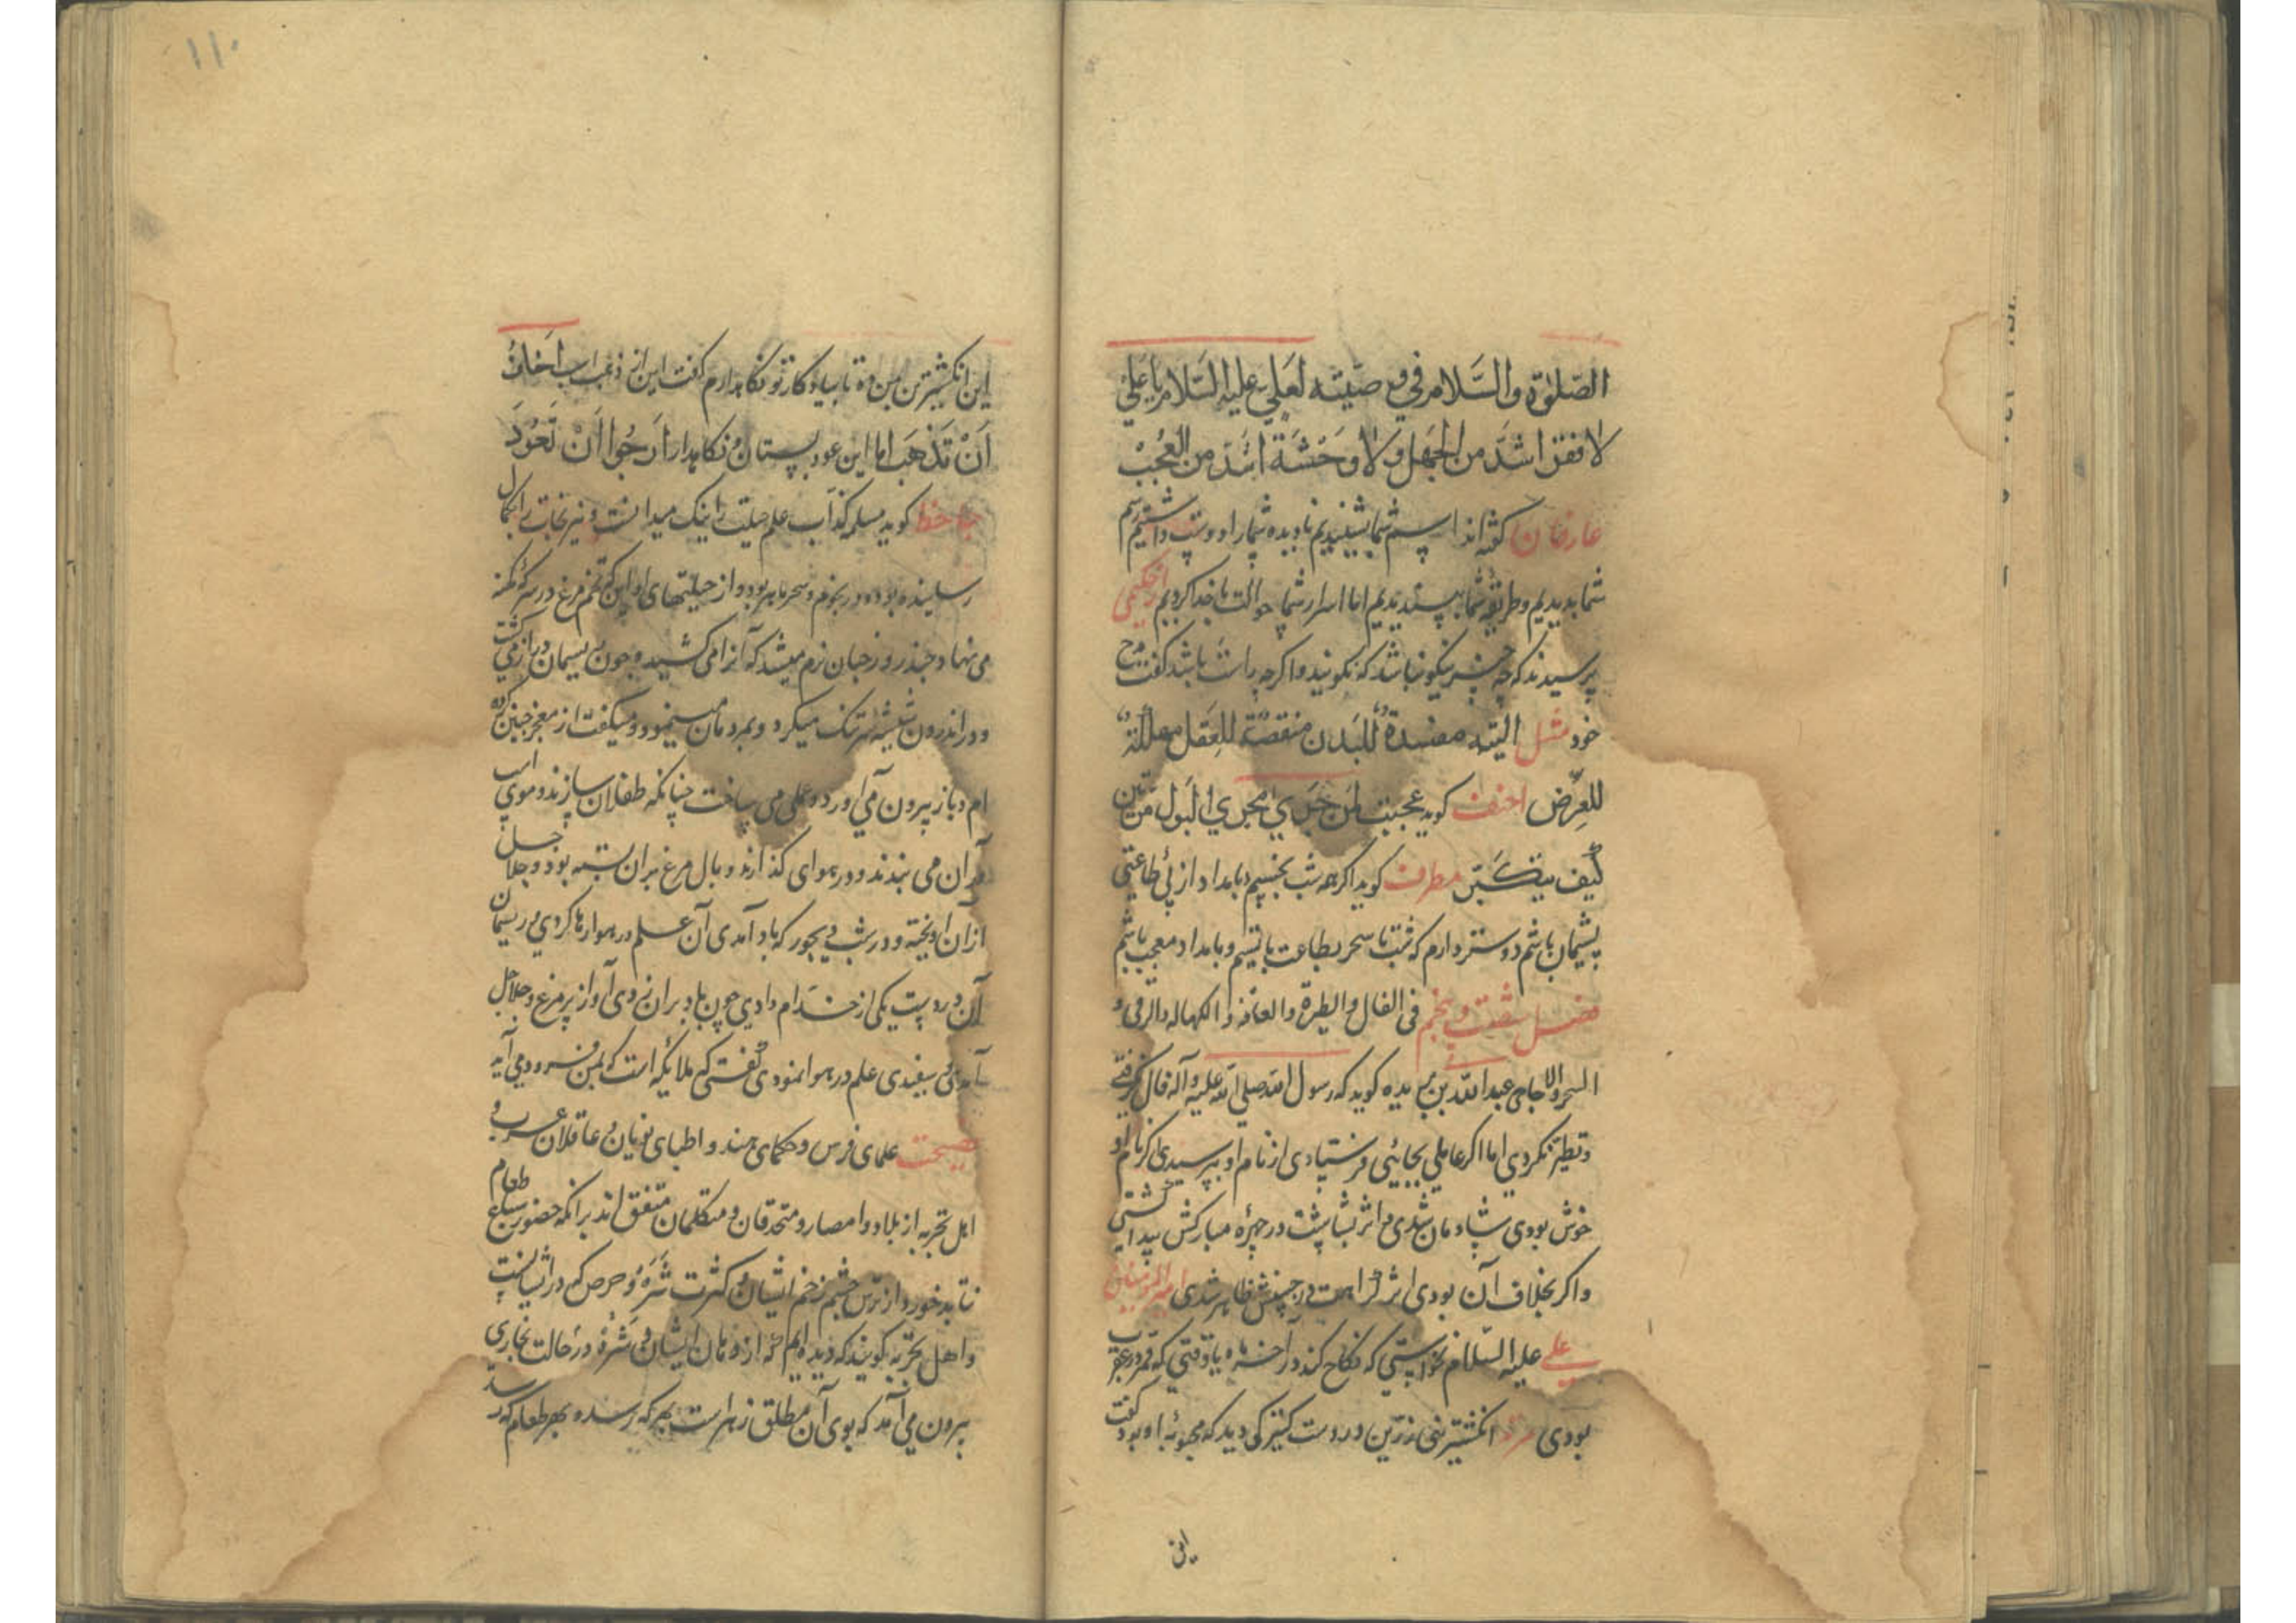 الصلوة والسلام في وصيته لعلي عليه السلام يا علي
لا فقر اشد من الجهل ولا وحشة اشد من العجب
عارفان گفته اند اسم شما بشنیدیم نادیده شما را دوست داشتیم رسم
شما بدیدیم و طریقه شما بپسندیدیم اما اسرار شما حوالت با خدا کردیم از حکیمی
پرسیدند که چه چیز نیکو نباشد که نکویند و اگرچه راست باشد گفت مدح
خود مثل التیه مفسدة للبدن منقصة للعقل مهللة
للعرض احنف گوید عجبت لمن جری مجری البول مرتین
کیف یتکبر مطرف گوید اگر همه شب بخسپم و بامداد از بی طاعتی
پشیمان باشم دوستر دارم که شب تا سحر بطاعت باشم و بامداد معجب باشم
فصل شصت و پنجم فی الفال والطیرة والعافه والکهانه والرقی و
السحر والاحاجی عبدالله بن بریده گوید که رسول الله صلی الله علیه وآله فال گرفتی
و تطیر نکردی اما اگر عاملی بجائی فرستادی از نام او بپرسیدی اگر نام او
خوش بودی شادمان شدی و اثر بشاشت در چهره مبارکش پیدا گشتی
و اگر بخلاف آن بودی اثر کراهت در جبینش ظاهر شدی امیرالمومنین
علی علیه السلام نخواستی که نکاح کند در آخر ماه یا وقتی که قمر در عقرب
بودی مردی انگشترینی زرین در دست کنیزکی دید که محبوبه او بود گفت
این
۱۱۰
این انگشترین بمن ده تا بیادگار تو نگاه دارم گفت این از ذهب است اخاف
ان تذهب اما این عود بستان و نگاه دار ارجوا ان تعود
جاحظ گوید مسلمه کذاب علم حیلت را نیک میدانست و نیرنجات را بکمال
رسانیده بود و در نجوم و سحر ماهر بود و از حیلتهای او این که تخم مرغ در سرکه کهنه
می نهاد و چند روز چنان نرم میشد که آنرا می کشید و چون ریسمان دراز می گشت
و در اندرون شیشه سرتنک میکرد و بمردمان مینمود و میگفت از معجز چنین کرده
ام و باز بیرون می آورد و علمی می ساخت چنانکه طفلان سازند و موی اسب
در آن می بندند و در هوا می گذارند و بال مرغ بران بسته بود و جلاجل
ازان اویخته و در شب دیجور که باد آمدی آن علم در هوا رها کردی و ریسمان
آن در دست یکی از خدام دادی چون باد بران زدی آواز پر مرغ و جلاجل
آمدی و سفیدی علم در هوا نمودی گفتی که ملائکه است که بمن فرود می آید
نصیحت علمای فرس و حکمای هند و اطبای یونان و عاقلان عرب و
اهل تجربه از بلاد و امصار و متحدقان و متکلمان متفق اند برانکه حضور سباع طعام
نباید خورد از ترس چشم زخم ایشان و کثرت شره و حرص که در ایشانست
و اهل تجربه گویند که دیده ایم که از دهان ایشان و شره در حالت بخاری
بیرون می آمد که بوی آن مطلق زهر است بهر که رسد و بهر طعام که رسد